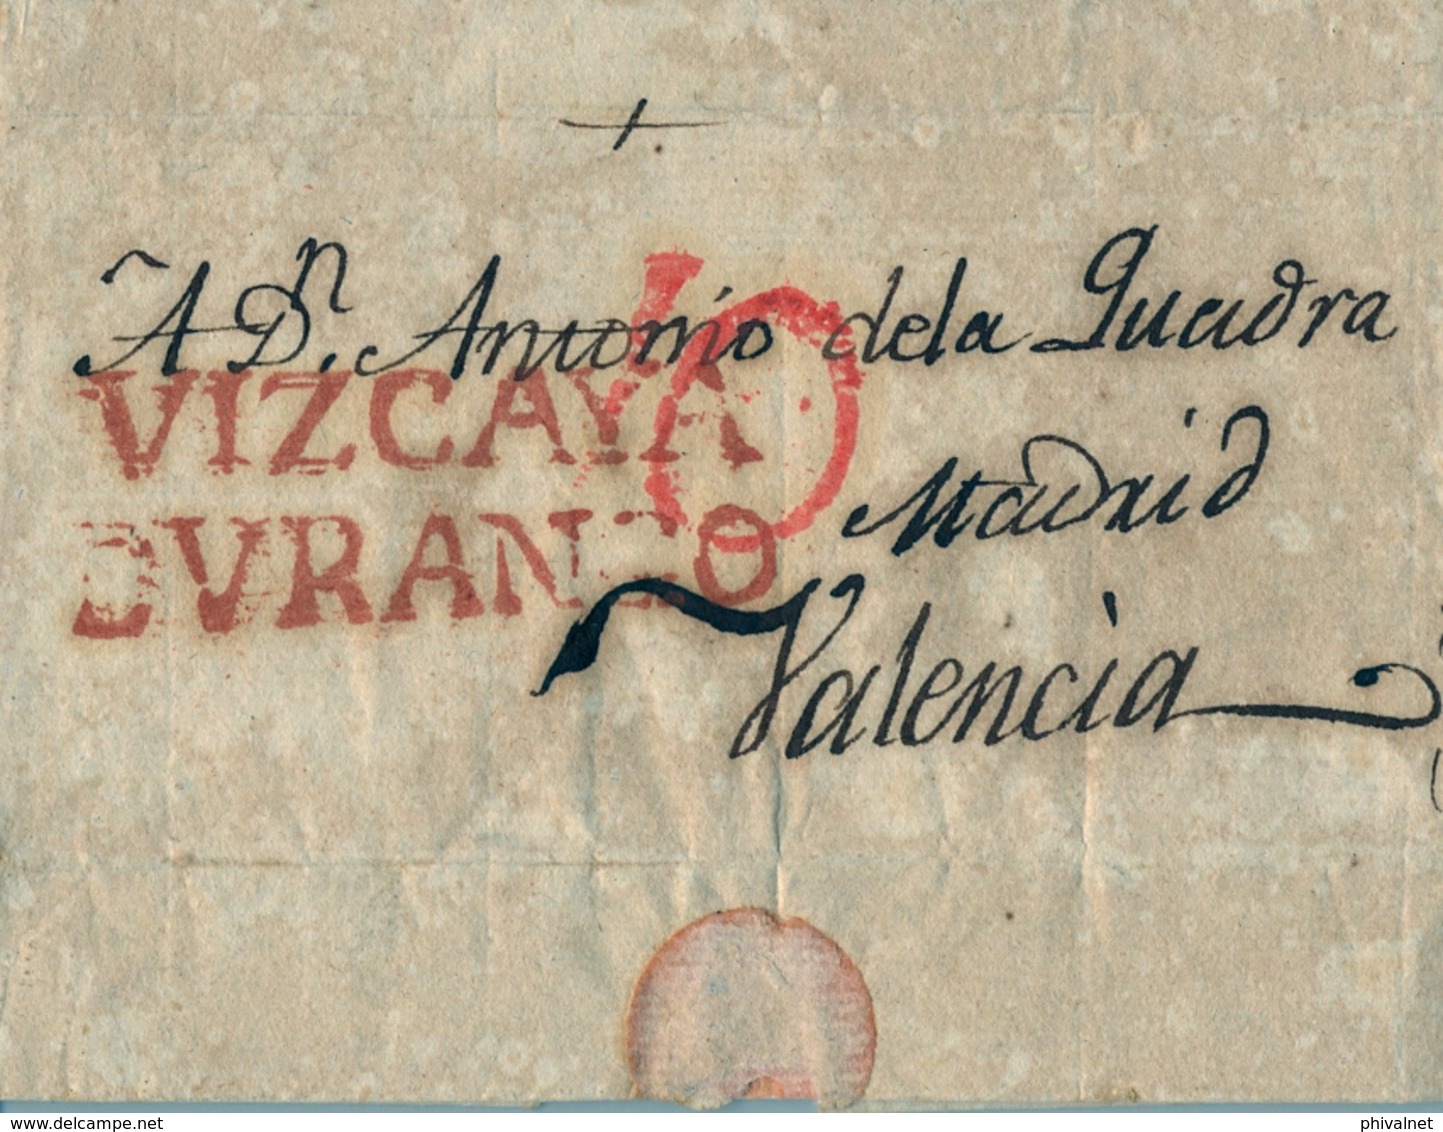 +
A Dn. Antonio dela Quadra
VIZCAYA
DVRANGO
6
Madrid
Valencia
delcampe.net
phivalnet